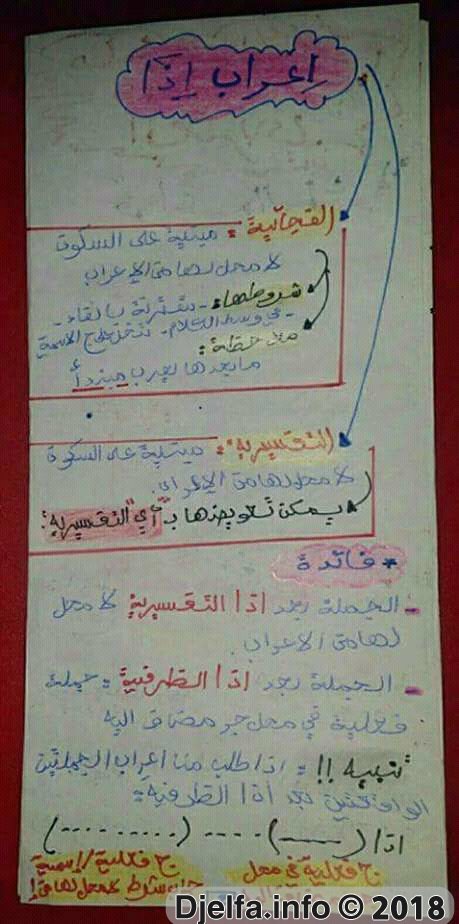 إعراب إذا
الفجائية: مبنية على السكون
لا محل لها من الإعراب
شروطها: - مقترنة بالفاء -
- في وسط الكلام - تدخل على ج الاسمية
ملاحظة:
ما بعدها يعرب مبتدأ
التفسيرية: مبنية على السكون
لا محل لها من الإعراب.
يمكن تعويضها بـ "أي" التفسيرية.
* فائدة
- الجملة بعد إذا التفسيرية لا محل
لها من الاعراب.
- الجملة بعد إذا الظرفية: جملة
فعلية في محل جر مضاف إليه
تنبيه!!: اذا طلب منا إعراب الجملتين
الواقعتين بعد أذا الظرفية:
اذا (ـــــ) .... (.........)
ج فعلية في محل
ج فعلية/إسمية
Djelfa.info © 2018